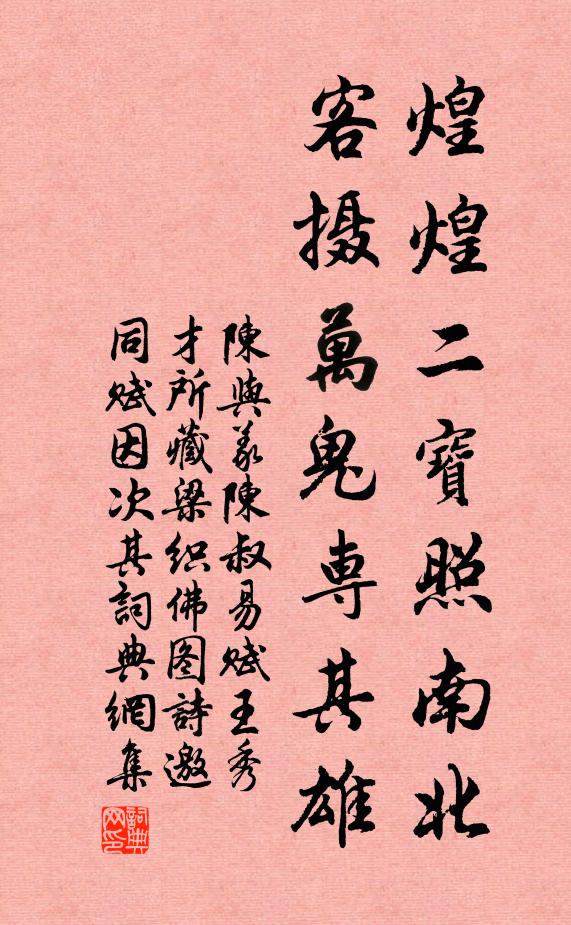 煌煌二寶照南北
客摄萬鬼専其雄
陳與義陳叔易賦王秀
才所藏梁织佛图詩邀
同赋因次其詞典網集
詞典
网印